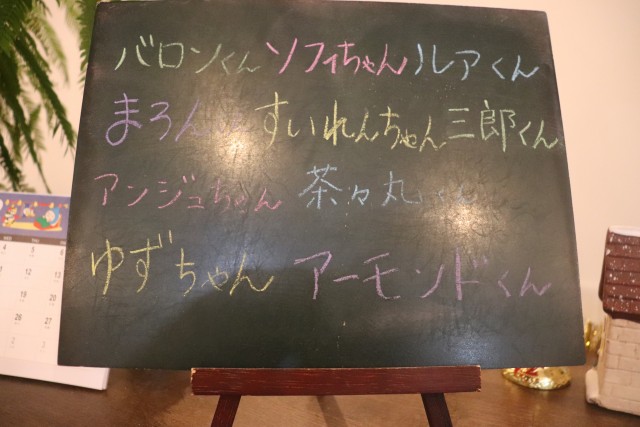 バロンくん ソフィちゃん ルアくん
まろん すいれんちゃん 三郎くん
アンジュちゃん 茶々丸くん
ゆずちゃん アーモンドくん